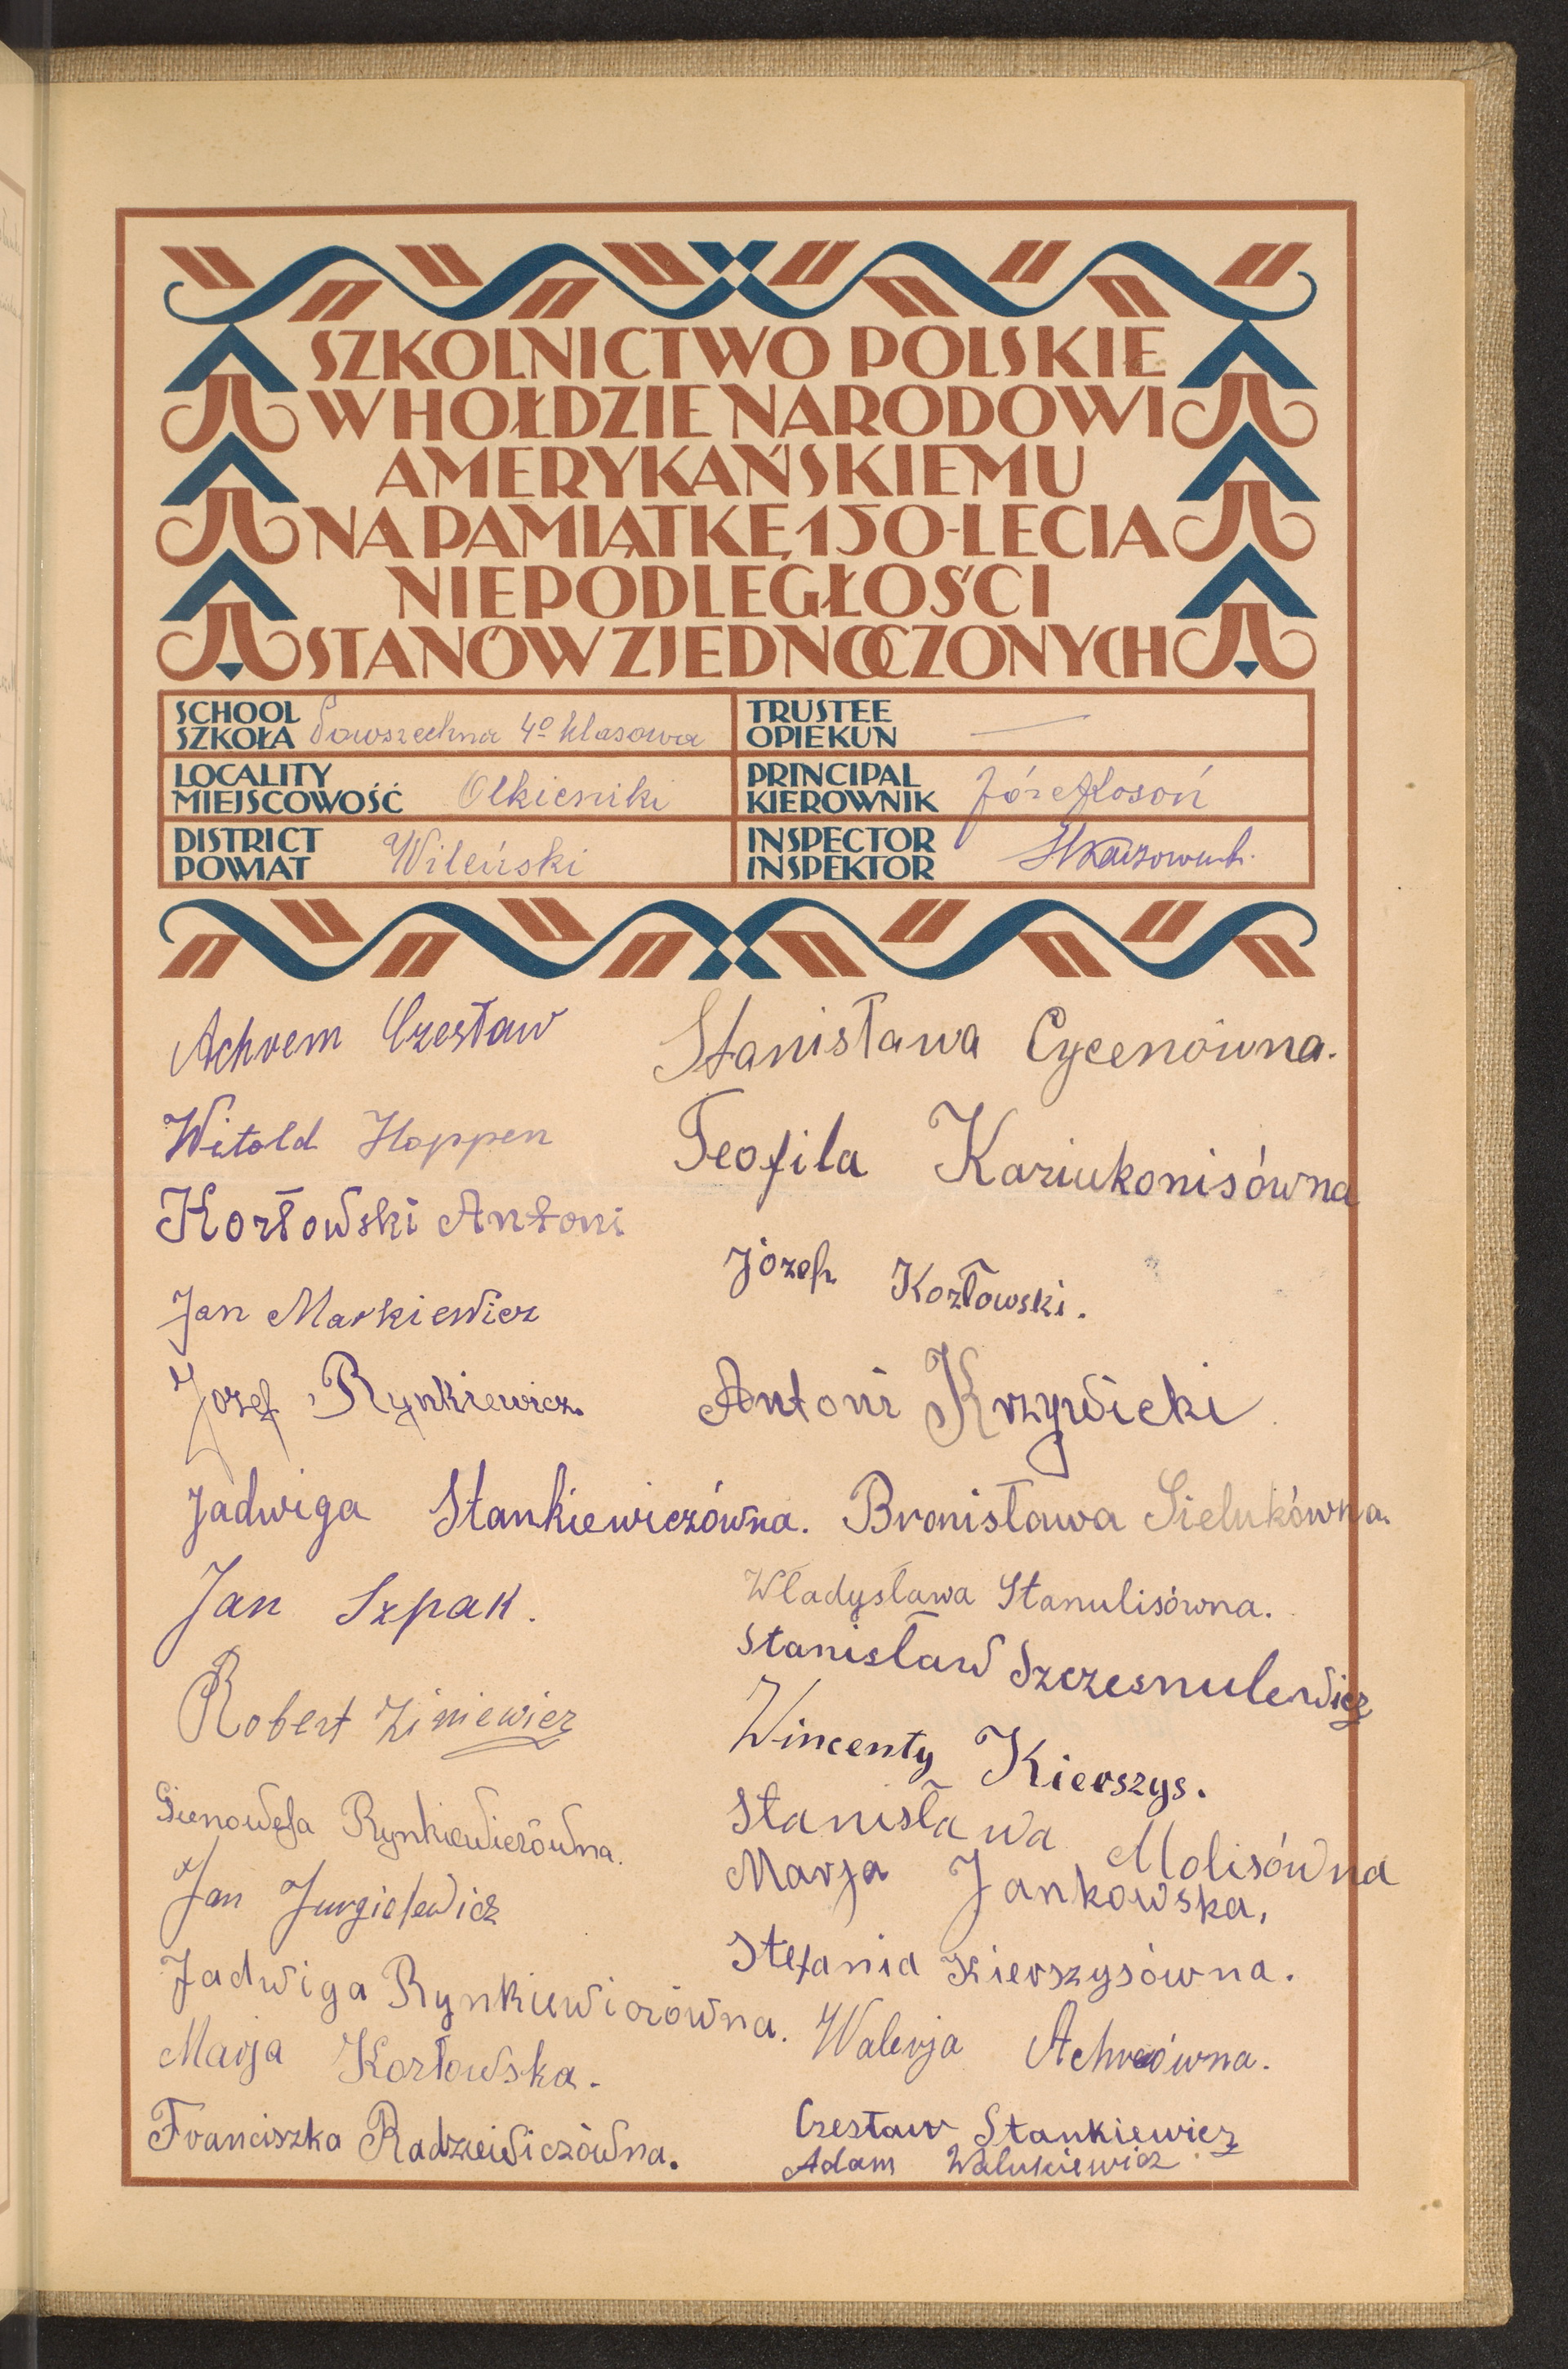 SZKOLNICTWO POLSKIE
W HOŁDZIE NARODOWI
AMERYKAŃSKIEMU
NA PAMIĄTKĘ 150-LECIA
NIEPODLEGŁOŚCI
STANÓW ZJEDNOCZONYCH
SCHOOL
SZKOŁA Powszechna 4º klasowa
TRUSTEE
OPIEKUN —
LOCALITY
MIEJSCOWOŚĆ Olkieniki
PRINCIPAL
KIEROWNIK Józef Kosoń
DISTRICT
POWIAT Wileński
INSPECTOR
INSPEKTOR
Achrem Czesław
Witold Hoppen
Kozłowski Antoni
Jan Markiewicz
Józef Rynkiewicz.
Jadwiga Stankiewiczówna.
Jan Szpak.
Robert Ziniewicz
Gienowefa Rynkiewiczówna.
Jan Jurgielewicz
Jadwiga Rynkiewiczówna.
Marja Kozłowska.
Franciszka Radziewiczówna.
Stanisława Cycenówna.
Teofila Kaziukonisówna
Józef Kozłowski.
Antoni Krzywicki
Bronisława Sielukówna.
Władysława Stanulisówna.
Stanisław Szczesnulewicz
Wincenty Kierszys.
Stanisława Molisówna
Marja Jankowska,
Stefania Kierszysówna.
Walerja
Czesław Stankiewicz
Adam Walukiewicz.